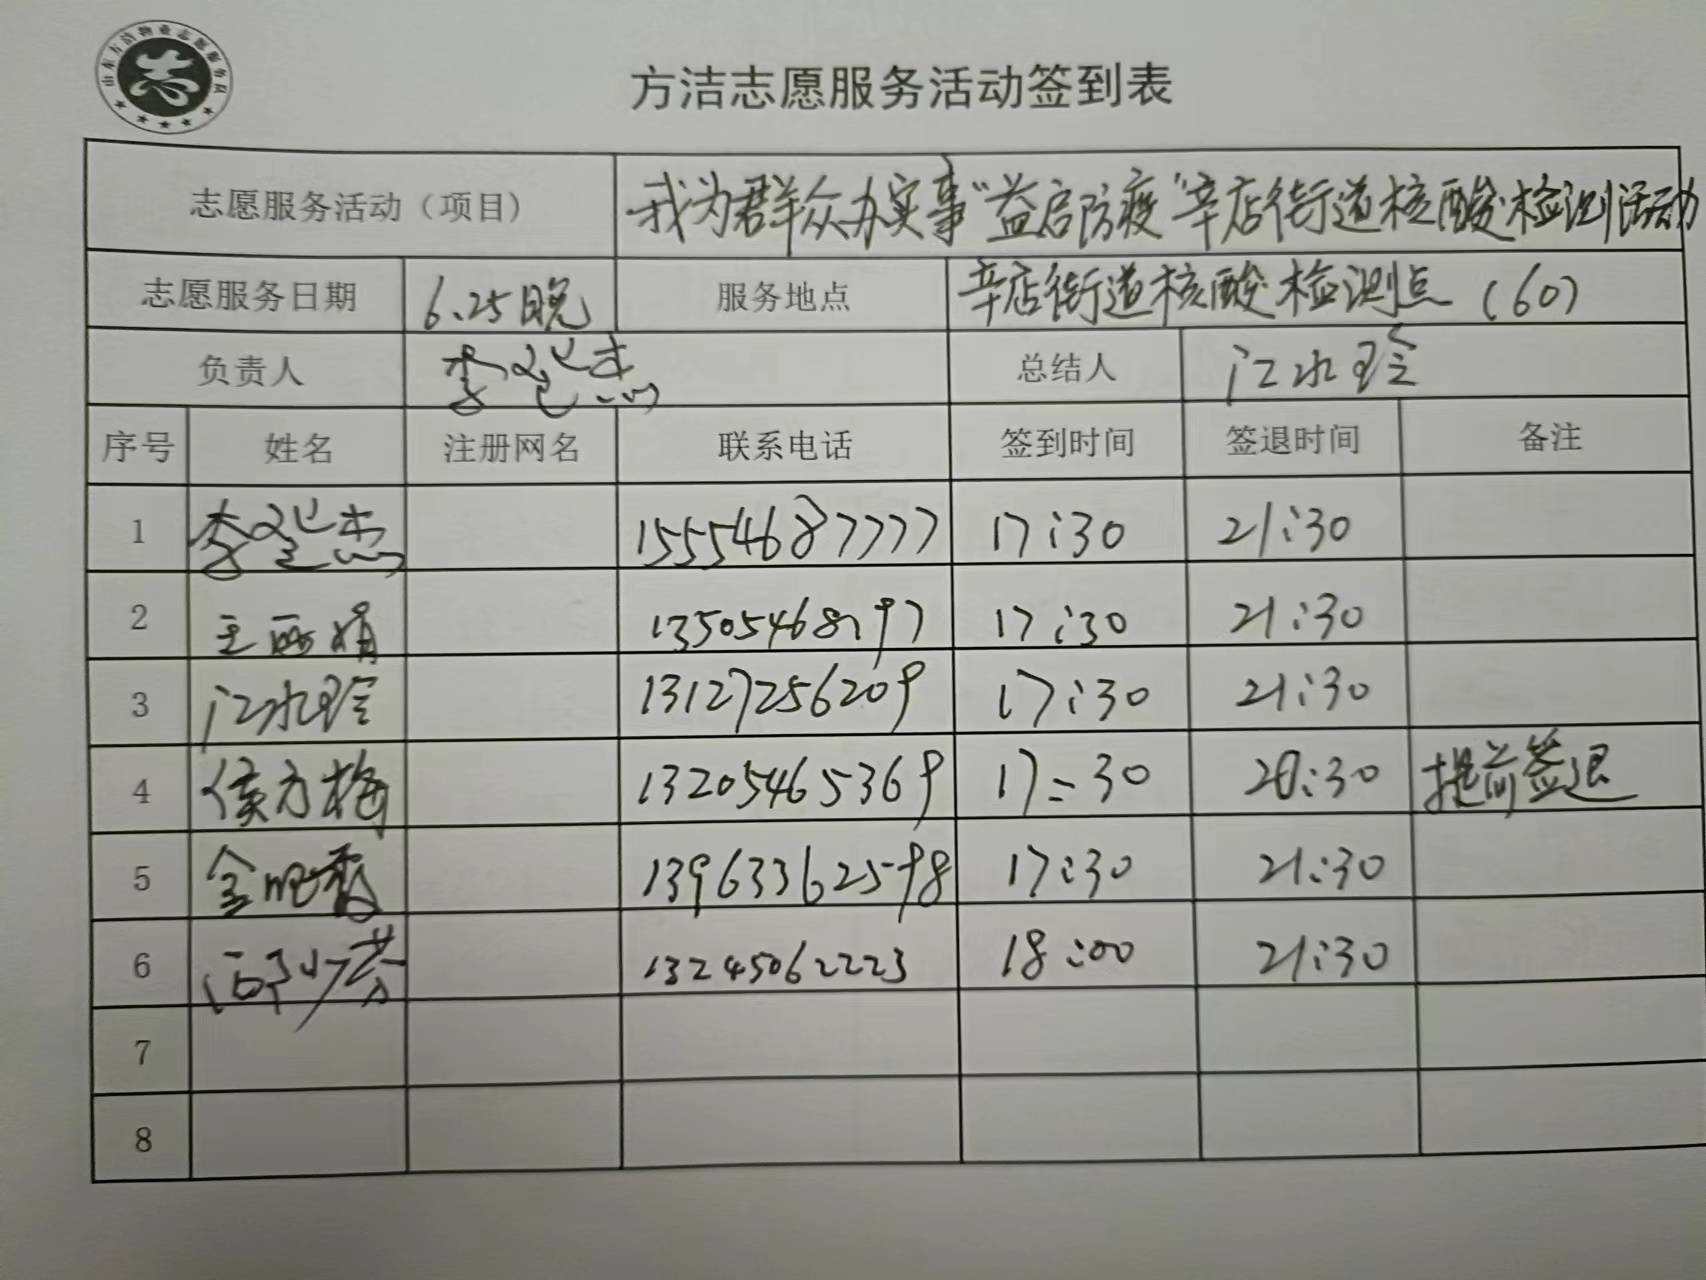 山东方洁物业志愿服务队
志
方洁志愿服务活动签到表
志愿服务活动（项目） 我为群众办实事“益启防疫”辛店街道核酸检测活动
志愿服务日期 6.25晚 服务地点 辛店街道核酸检测点（60）
负责人 李延杰 总结人 江水玲
序号 姓名 注册网名 联系电话 签到时间 签退时间 备注
1 李延杰 15554687777 17:30 21:30
2 王西娟 17:30 21:30
3 江水玲 13127256209 17:30 21:30
4 侯方梅 13205465369 17:30 20:30 提前签退
5 13963362598 17:30 21:30
6 13245062223 18:00 21:30
7
8